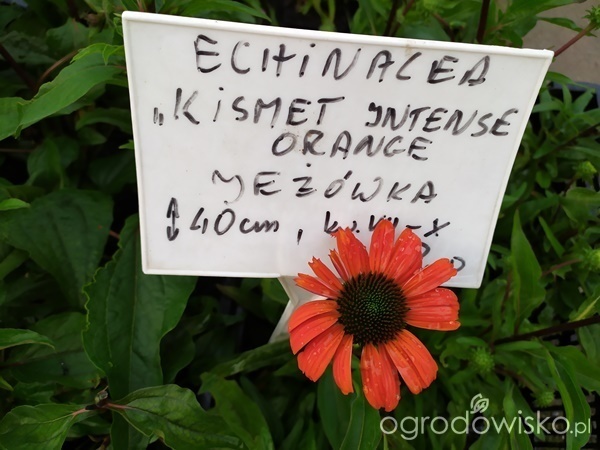 ECHINACEA
„KISMET INTENSE
ORANGE
JEŻÓWKA
↕40cm, kw. VI-X
ogrodowisko.pl